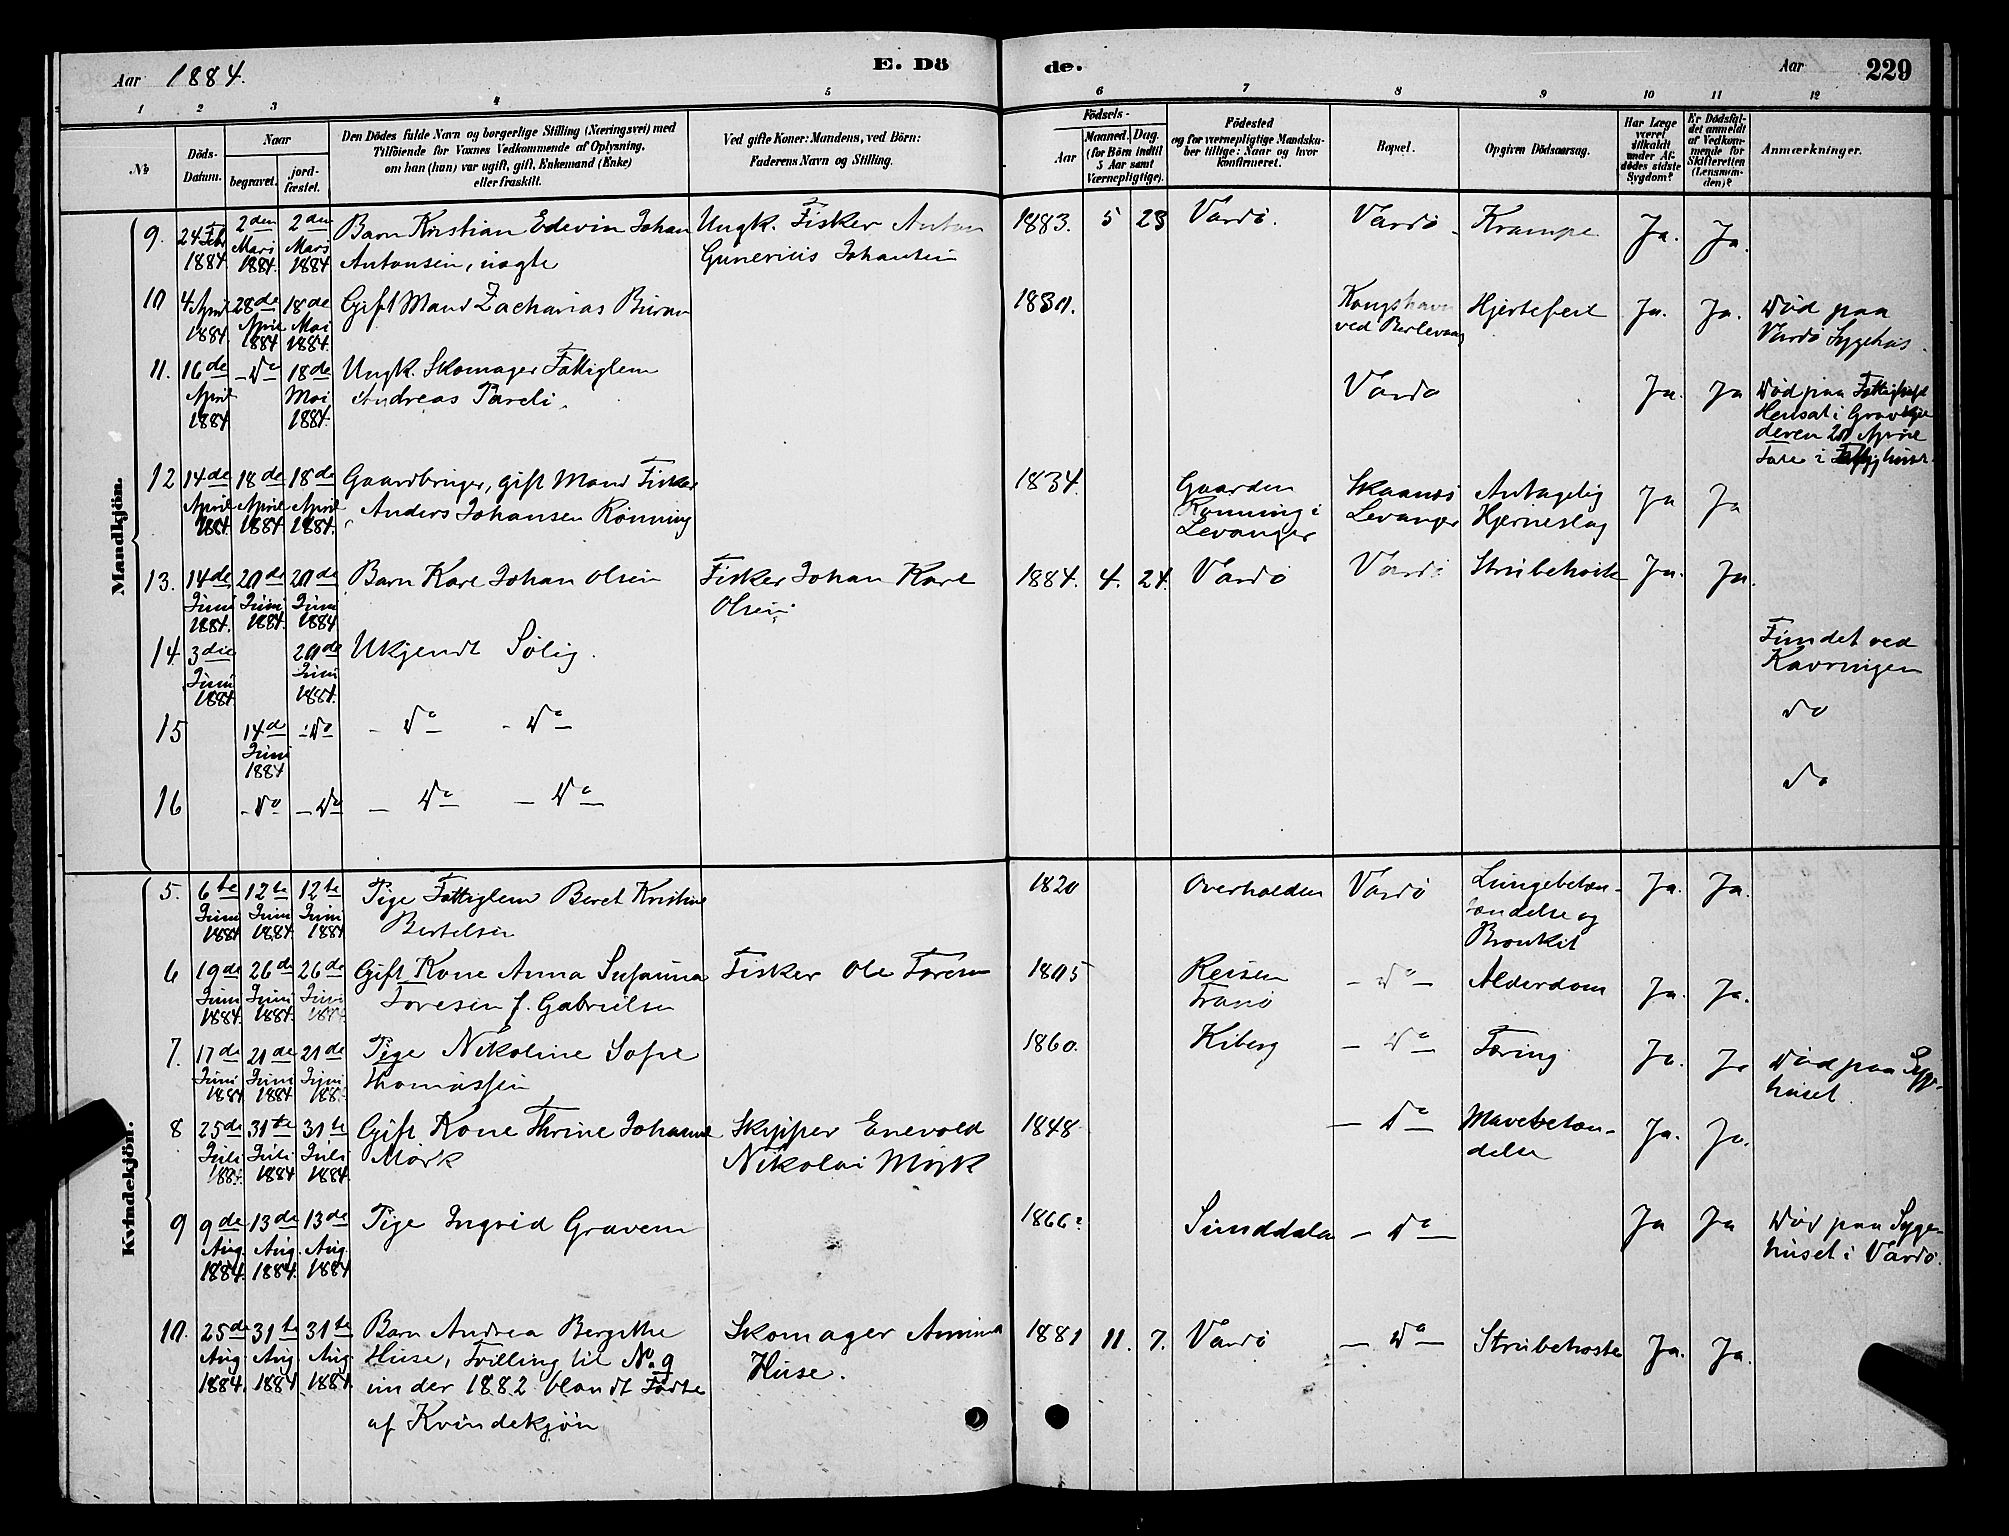 Aar 1884. E. Dö de. Aar 229
1 2 3 4 5 6 7 8 9 10 11 12
№ Döds-Datum. Naar begravet. jord-fæstet.
Den Dödes fulde Navn og borgerlige Stilling (Næringsvei) med
Tilföiende for Voxnes Vedkommende af Oplysning,
om han (hun) var ugift, gift, Enkemand (Enke)
eller fraskilt.
Ved gifte Koner: Mandens, ved Börn:
Faderens Navn og Stilling.
Födsels-
Aar Maaned. Dag.
(for Börn indtil
5 Aar samt
Værnepligtige).
Födested
og for værnepligtige Mandska-
ber tillige: Naar og hvor
konfirmeret.
Bopæl.
Opgiven Dödsaarsag.
Har Læge
været
tilkaldt
under Af-
dödes sidste
Sygdom?
Er Dödsfal-
det anmeldt
af Vedkom-
mende for
Skifteretten
(Lensman-
den)?
Anmærkninger.
Mandkjön.
9. 24 Feb. 1884. 2den Marts 1884. 2den Marts 1884
Barn Kristian Edevin Johan
Antonsen, uægte
Ungk. Fisker Anton
Generius Johansen
1883. 5 23 Vardö. Vardö. Krampe Ja. Ja.
10 4 April 1884. 28de April 1884 18de Mai 1884.
Gift Mand Zacharias
1830. Kongshavn
ved Berlevaag
Hjertefeil Ja. Ja. Död paa
Vardö Sygehus.
11. 16de April 1884 – Do 18de Mai 1884.
Ungk. Skomager Fattiglem
Andreas
Vardö Ja. Ja Död paa
Hensat i
deren 20 April
i
12 14de April 1884. 18de April 1884 18de April 1884.
Gaardbruger, gift Mand Fisker
Anders Johansen Rönning
1834. Gaarden
Rönning i
Levanger
Skaanes
Levanger
Antagelig
Hjerneslag
Ja Ja
13. 14de Juni 1884. 20de Juni 1884. 20de Juni 1884
Barn Karl Johan Olsen
Fisker Johan Karl
Olsen.
1884. 4. 24. Vardö Vardö Strubehoste Ja. Ja.
14 3die Juni 1884. 20de Juni 1884.
Ukjendt Sölig.
Fundet ved
Kavringen
15 14de Juni 1884 – Do – Do – – Do – do
16 – Do – Do – Do – – Do – do
Kvindekjön.
5. 6te Juni 1884 12te Juni 1884. 12te Juni 1884
Pige Fattiglem Beret Kristine
Bertelsen
1820 Overhalden Vardö Lungebetæn-
tændelse og
Bronkit
Ja. Ja.
6 19de Juni 1884. 26de Juni 1884. 26de Juni
Gift Kone Anna Susanna
Toresen f. Gabrielsen
Fisker Ole Toresen
1805 Reisen
Tranö
– Do – Alderdom Ja. Ja.
7. 17de Juni 1884 21de Juni 1884 21de Juni
Pige Nikoline Sofie
Thomassen
1860. Kiberg – Do – Tæring Ja. Ja Död paa Syge-
huset.
8 25de Juli 31te Juli 1884 31te Juli 1884.
Gift Kone Thrine Johanne
Mörk
Skipper Enevold
Nikolai Mörk
1848 – Do – Mavebetæn-
delse
Ja. Ja.
9 9de Aug. 1884. 13de Aug. 1884. 13de Aug. 1884
Pige Ingrid Gravem
1866. Sunddalen – Do – Ja Ja Död paa Syge-
huset i Vardö.
10. 25de Aug. 1884. 31te Aug. 1884 31te Aug 1884.
Barn Andrea Bergithe
Huse, Tvilling til No. 9
under 1882 blandt Födte
af Kvindekjön
Skomager
Huse.
1881 11. 7. Vardö – Do – Strubehoste Ja. Ja.